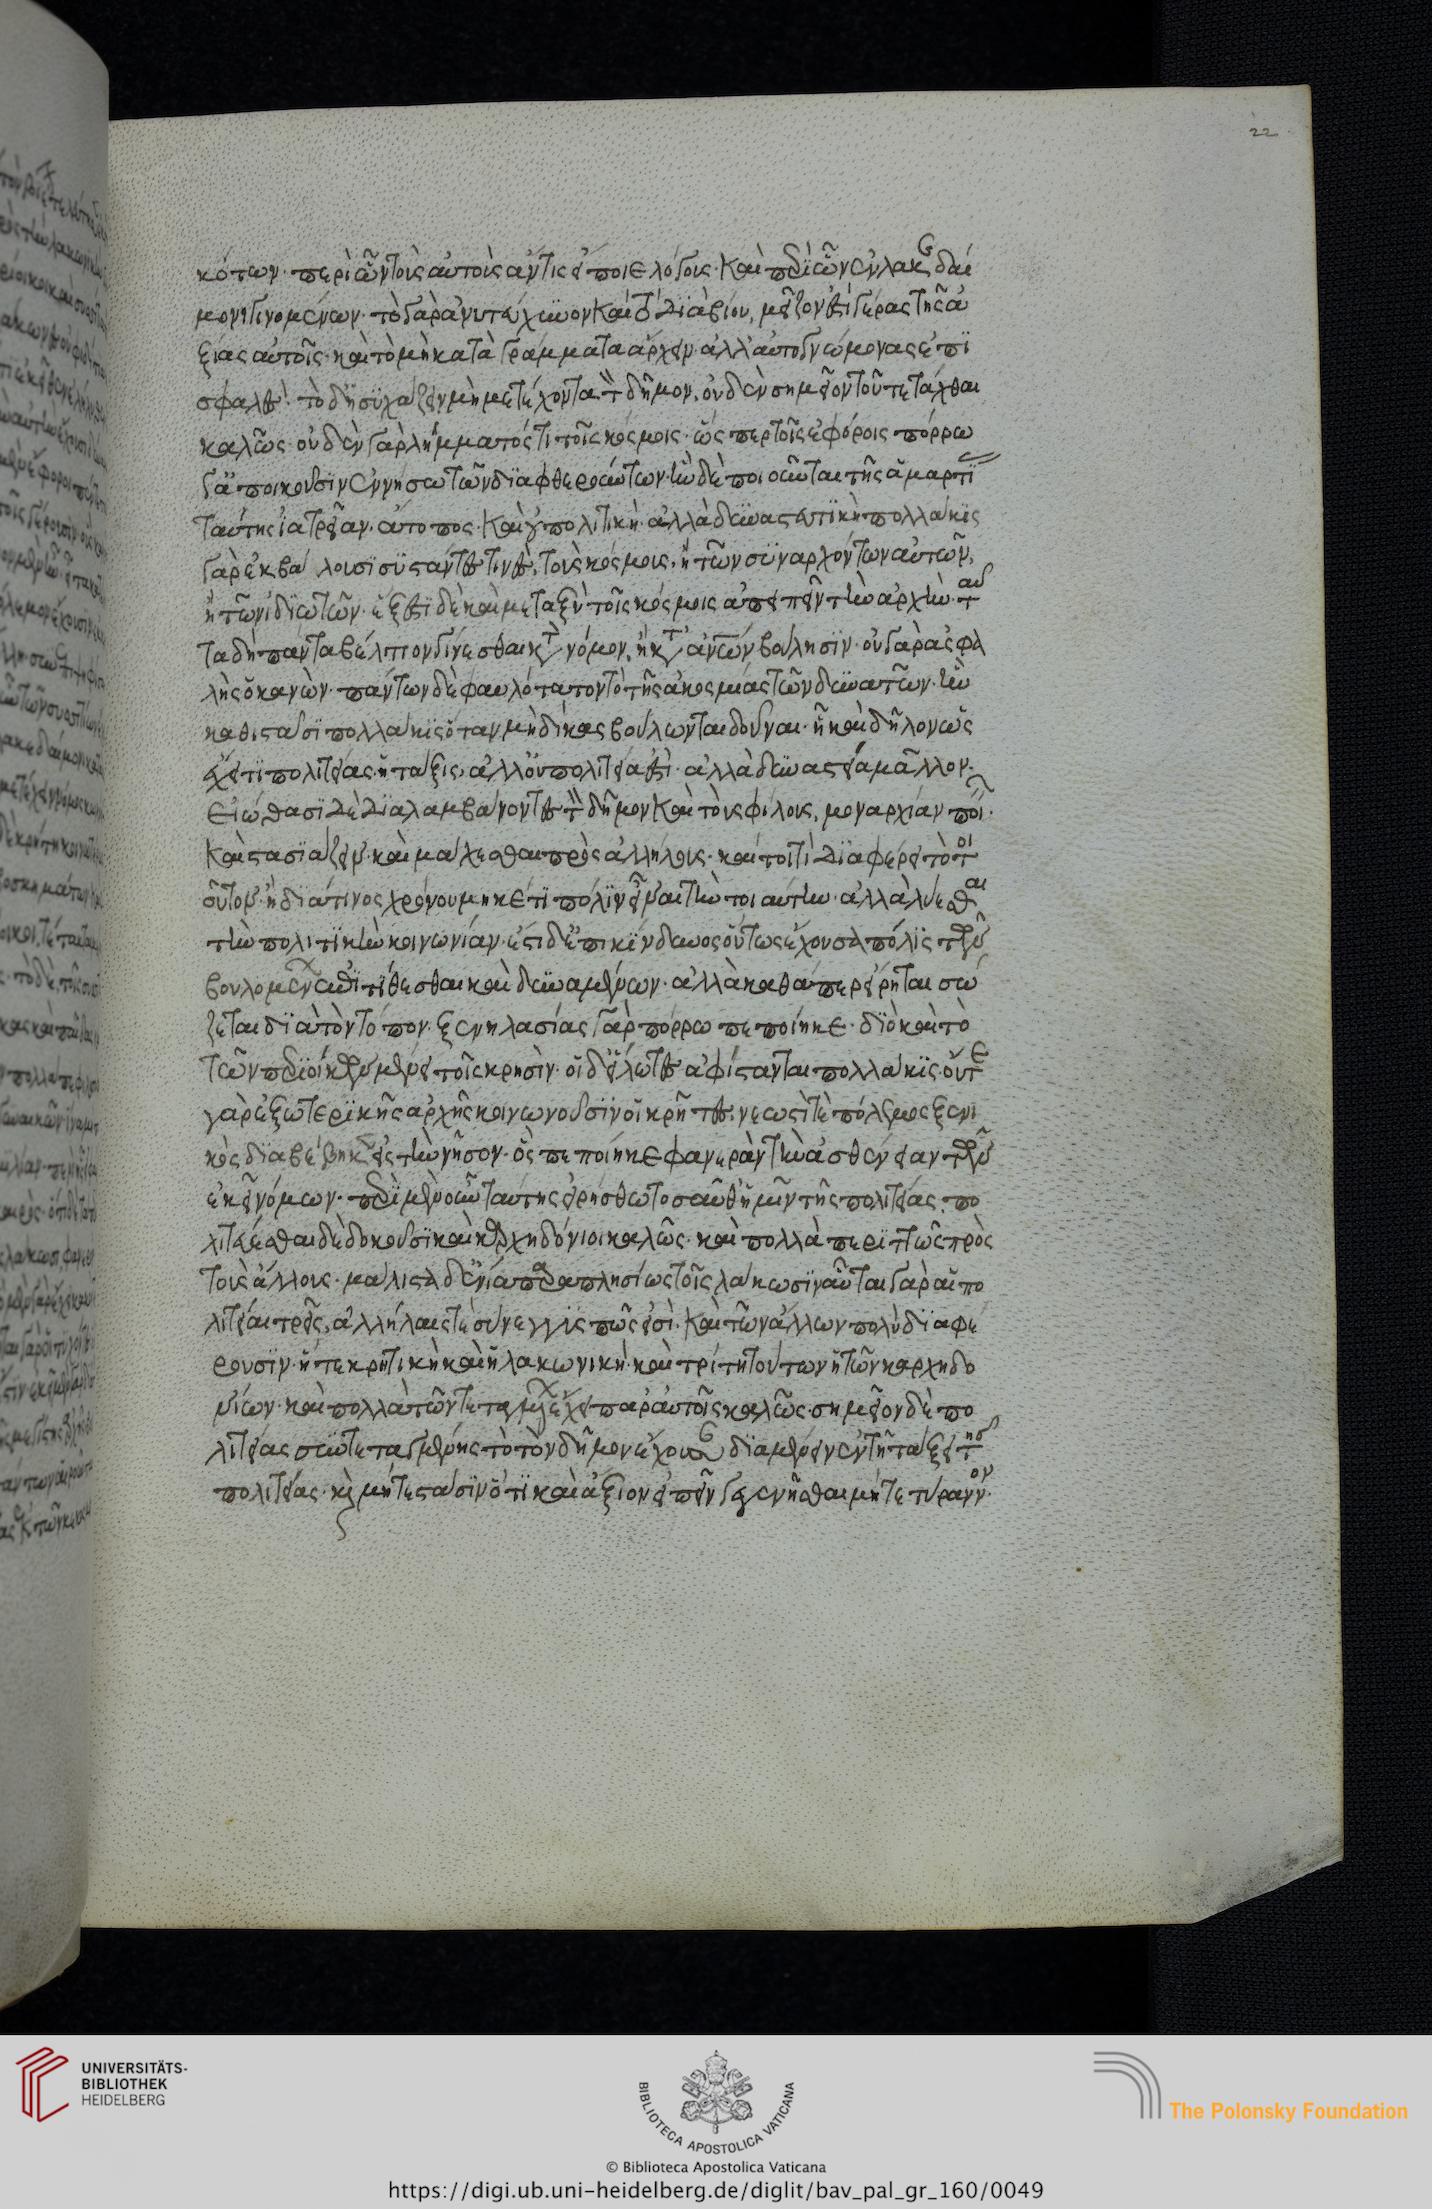 22
κότων· περὶ ὧν τοὺς αὐτοὺς ἄν τις εἴποιε λόγους· καὶ περὶ τῶν ἐν λακεδαί
μονι γινομένων· τὸ γὰρ ἀνυπεύθυνον καὶ τὸ διὰ βίου, μεῖζον ἐστὶ γέρας τῆς ἀ
ξίας αὐτοῖς· καὶ τὸ μὴ κατὰ γράμματα ἄρχειν ἀλλ' αὐτογνώμονας ἐπι
σφαλές· τὸ δ' ἡσυχάζειν μὴ μετέχοντα τὸν δῆμον, οὐδὲν σημεῖον τοῦ τετάχθαι
καλῶς· οὐδὲν γὰρ λήμματός τι τοῖς κόσμοις· ὥσπερ τοῖς ἐφόροις πόρρω
γ' ἀποικοῦσιν ἐν νήσω τῶν διαφθερούντων· ἣν δὲ ποιοῦνται τῆς ἁμαρτί
ταύτης ἰατρείαν· ἄτοπος· καὶ οὐ πολιτικὴ· ἀλλὰ δυναστευτικὴ· πολλάκις
γὰρ ἐκβάλλουσι συστάντες τινὲς, τοὺς κόσμους, ἢ τῶν συναρχόντων αὐτῶν,
ἢ τῶν ἰδιωτῶν· ἔξεστι δὲ καὶ μεταξὺ τοῖς κόσμοις ἀπειπεῖν τὴν ἀρχὴν· ταῦ
τα δὴ πάντα βέλτιον γίνεσθαι κατὰ νόμον, ἢ κατ' ἀνθρώπων βούλησιν· οὐ γὰρ ἀσφα
λὴς ὁ κανὼν· πάντων δὲ φαυλότατον τὸ τῆς ἀκοσμίας τῶν δυνατῶν· ἣν
καθιστᾶσι πολλάκις ὅταν μὴ δίκας βούλωνται δοῦναι· ἧ καὶ δῆλον ὡς
ἔχει τι πολιτείας ἡ τάξις, ἀλλ' οὐ πολιτεία ἐστὶ· ἀλλὰ δυναστεία μᾶλλον·
εἰώθασι δὲ διαλαμβάνοντες τὸν δῆμον καὶ τοὺς φίλους, μοναρχίαν ποι·
καὶ στασιάζειν· καὶ μάχεσθαι πρὸς ἀλλήλους· καίτοι τί διαφέρει τὸ τοι
οῦτον· ἢ διά τινος χρόνου μηκέτι πόλιν εἶναι τὴν τοιαύτην· ἀλλὰ λύεσθαι
τὴν πολιτικὴν κοινωνίαν· ἔστι δ' ἐπικίνδυνος οὕτως ἔχουσα πόλις τῶν
βουλομένων ἐπιτίθεσθαι καὶ δυναμένων· ἀλλὰ καθάπερ εἴρηται σώ
ζεται διὰ τὸν τόπον· ξενηλασίας γὰρ πόρρω πεποίηκε· διὸ καὶ τὸ
τῶν περιοίκων μένει τοῖς κρησὶν· οἱ δ' εἵλωτες ἀφίστανται πολλάκις· οὔτε
γὰρ ἐξωτερικῆς ἀρχῆς κοινωνοῦσιν οἱ κρῆτες· νεωστί τε πόλεμος ξενι
κὸς διαβέβηκεν εἰς τὴν νῆσον· ὃς πεποίηκε φανερὰν τὴν ἀσθένειαν τῶν
ἐκεῖ νόμων· περὶ μὲν οὖν ταύτης εἰρήσθω τοσαῦθ' ἡμῖν τῆς πολιτείας· πο
λιτεύεσθαι δὲ δοκοῦσι καὶ καρχηδόνιοι καλῶς· καὶ πολλὰ περιττῶς πρὸς
τοὺς ἄλλους· μάλιστα δ' ἔνια παραπλησίως τοῖς λάκωσιν αὗται γὰρ αἱ πο
λιτεῖαι τρεῖς, ἀλλήλαις τε σύνεγγύς πως εἰσὶ· καὶ τῶν ἄλλων πολὺ διαφέ
ρουσιν· ἥ τε κρητικὴ καὶ ἡ λακωνικὴ· καὶ τρίτη τούτων ἡ τῶν καρχηδο
νίων· καὶ πολλὰ τῶν τεταγμένων ἔχει παρ' αὐτοῖς καλῶς· σημεῖον δὲ πο
λιτείας συντεταγμένης τὸ τὸν δῆμον ἔχουσαν διαμένειν ἐν τῆ τάξει τῆς
πολιτείας· καὶ μήτε στάσιν ὅτι καὶ ἄξιον εἰπεῖν γεγενῆσθαι μήτε τύραννον·
UNIVERSITÄTS-
BIBLIOTHEK
HEIDELBERG
BIBLIOTECA APOSTOLICA VATICANA
© Biblioteca Apostolica Vaticana
The Polonsky Foundation
https://digi.ub.uni-heidelberg.de/diglit/bav_pal_gr_160/0049